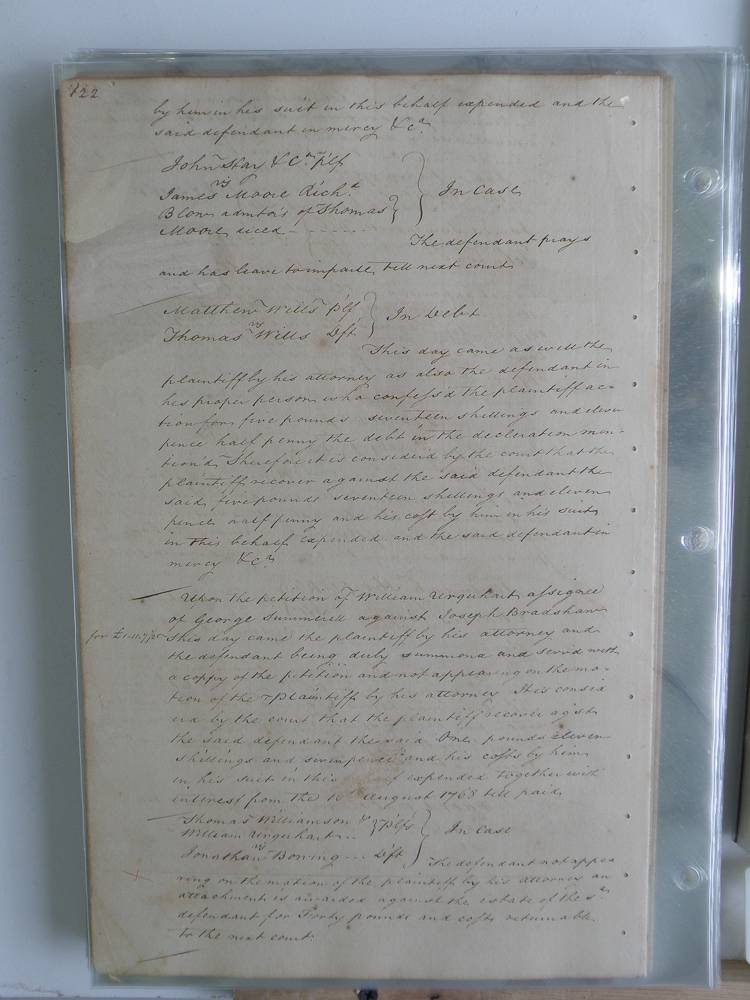 122
by him in his suit in this behalf expended and the
said defendant in mercy &c.a
John Hay & Co. plf
vs
James Moore Rich.d
Blow admtors of Thomas
Moore deced
In Case
The defendant prays
and has leave to imparle till next court
Matthew Wills plf
vs
Thomas Wills Dft
In Debt
This day came as well the
plaintiff by his attorney as also the defendant in
his proper person who confess'd the plaintiff ac-
tion for five pounds seventeen shillings and eleven
pence half penny the debt in the declaration men-
tion'd Therefore it is consider'd by the court that the
plaintiff recover against the said defendant the
said five pounds seventeen shillings and eleven
pence half penny and his cost by him in his suit
in this behalf expended and the said defendant in
mercy &c.a
Upon the petition of William Urquhart assignee
of George Summerell against Joseph Bradshaw
for £1.11.7
this day came the plaintiff by his attorney and
the defendant being duly summond and serv'd with
a coppy of the petition and not appearing on the mo-
tion of the plaintiff by his attorney It is consid
erd by the court that the plaintiff recover agst
the said defendant the said One pounds eleven
shillings and sevenpence and his costs by him
in his suit in this behalf expended together with
interest from the 10th August 1768 till paid
Thomas Williamson &
William Urquhart
plfs
vs
Jonathan Bowing Dft
In Case
The defendant not appea
ring on the motion of the plaintiff by his attorney an
attachment is awarded against the estate of the sd
defendant for Forty pounds and costs returnable
to the next court.